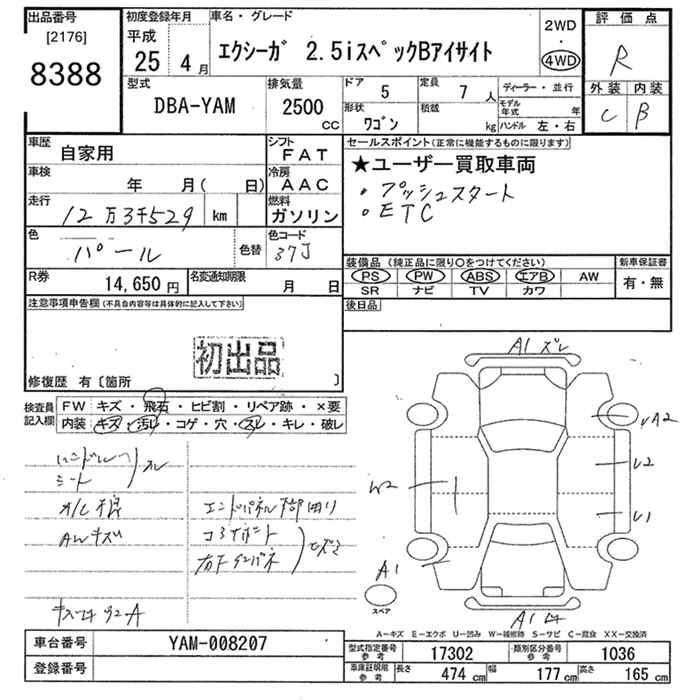 出品番号
[2176]
8388
初度登録年月
平成
25 年 4 月
車名・グレード
エクシーガ 2.5iスペックBアイサイト
2WD
・
4WD
評価点
R
外装 内装
C B
型式
DBA-YAM
排気量
2500
cc
ドア 5
形状 ワゴン
定員 7 人
積載 kg
ディーラー・並行
モデル年式 年
ハンドル 左・右
車歴 自家用
車検 年 月( 日)
走行 12万3千529 km
色 パール
色替
シフト FAT
冷房 AAC
燃料 ガソリン
色コード 37J
R券 14,650 円
名変通知期限 月 日
セールスポイント(正常に機能するものに限ります)
★ユーザー買取車両
・プッシュスタート
・ETC
装備品(純正品に限り○をつけてください)
PS PW ABS エアB AW
SR ナビ TV カワ
新車保証書
有・無
後日品
注意事項申告欄(不具合内容等は具体的に記入して下さい)
初出品
修復歴 有〔箇所 〕
検査員記入欄
FW キズ・飛石・ヒビ割・リペア跡・×要
内装 キズ・汚れ・コゲ・穴・スレ・キレ・破レ
ハンドル
シート
スレ
AWキズ
エンドパネル
コアサポート
A1 ズレ
UA2
U2
U1
W2
A1
A1
スペア
A-キズ E-エクボ U-凹み W-補修跡 S-サビ C-腐食 XX-交換済
車台番号 YAM-008207
登録番号
型式指定番号 参考 17302
類別区分番号 参考 1036
車庫証明用 参考
長さ 474 cm 幅 177 cm 高さ 165 cm